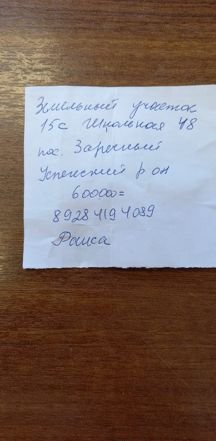 Земельный участок
15с Школьная 48
пос. Заречный
Успенский р он
600000=
8928 419 4089
Раиса